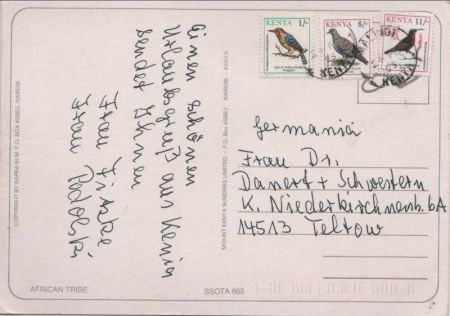 KENYA 1/-
KENYA 8/-
KENYA 11/-
KENYA
Einen schönen
Urlaubsgruß aus Kenia
sendet Ihnen
Frau Fritzke
Frau Podolski
Germania
Frau Dr.
Danert + Schwestern
K. Niederkirchnerstr. 6A
14513 Teltow
COPYRIGHT BY SAPRA M.M. P.O. BOX 45862, NAIROBI
MOUNT KENYA SUNDRIES LIMITED – P.O. Box 45862 NAIROBI - KENYA
AFRICAN TRIBE
SSOTA 665